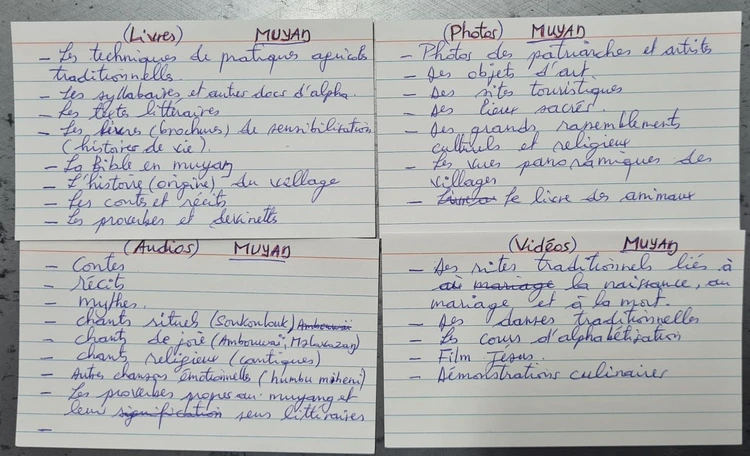 (Livres) MUYAŊ
- Les techniques de pratiques agricoles
traditionnelles.
- Les syllabaires et autres docs d'alpha.
- Les textes littéraires
- Les livres (brochures) de sensibilisation
(histoires de vie).
- La Bible en muyaŋ
- L'histoire (origine) du village
- Les contes et récits
- Les proverbes et devinettes
(Photos) MUYAŊ
- Photos des patriarches et artistes
- Des objets d'art.
- Des sites touristiques
- Des lieux sacrés.
- Des grands rassemblements
culturels et religieux
- Les vues panoramiques des
villages
- Le livre des animaux
(Audios) MUYAŊ
- Contes
- récits
- mythes.
- chants rituel (Soukoulouk)
- chants de joie (Ambouwaï,
- chants religieux (cantiques)
- Autres chansons émotionnelles (humbu
- Les proverbes propres au muyang et
leur signification sens littéraires
-
(Vidéos) MUYAŊ
- Des rites traditionnels liés à
au mariage la naissance, au
mariage et à la mort.
- Des danses traditionnelles
- Les cours d'alphabétisation
- Film Jésus.
- Démonstrations culinaires